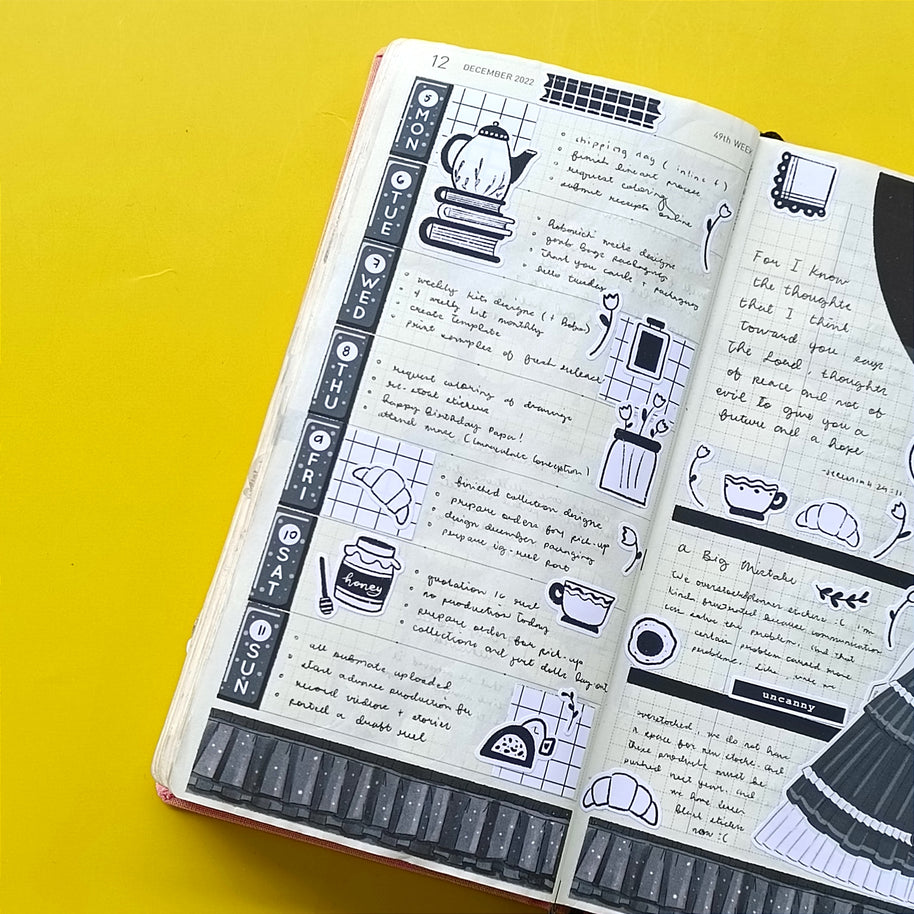 12 DECEMBER 2022
49th WEEK
5 MON
shipping day (inline 6)
finish lineart process
request coloring
submit receipts online
6 TUE
Hobonichi weeks designs
gonb bags packaging
thank you cards + packaging
hello tuesday
7 WED
weekly kits designs (+ Hobo)
+ weekly kit monthly
create template
print samples of fresh release
8 THU
request coloring of drawings
re-stock stickers
happy birthday Papa!
attend mass (Immaculate Conception)
9 FRI
finished collection designs
prepare orders for pick-up
design december packaging
prepare ig-reel post
10 SAT
honey
quotation ig reel
no production today
prepare order for pick-up
collections and just dolls buy out
11 SUN
all submats uploaded
start advance production for
record videos + stories
posted a draft reel
For I know
the thoughts
that I think
toward you says
the Lord, thoughts
of peace and not of
evil to give you a
future and a hope
-Jeremiah 29:11
A Big Mistake
We overstocked planner stickers :( I'm
kinda frustrated because communication
can solve the problem. And that
certain problem caused more
problems. Like, since we
uncanny
overstocked, we do not have
a space for new stocks. And
these products must be
pushed next year, and
we have lesser
blank stickers
now :(